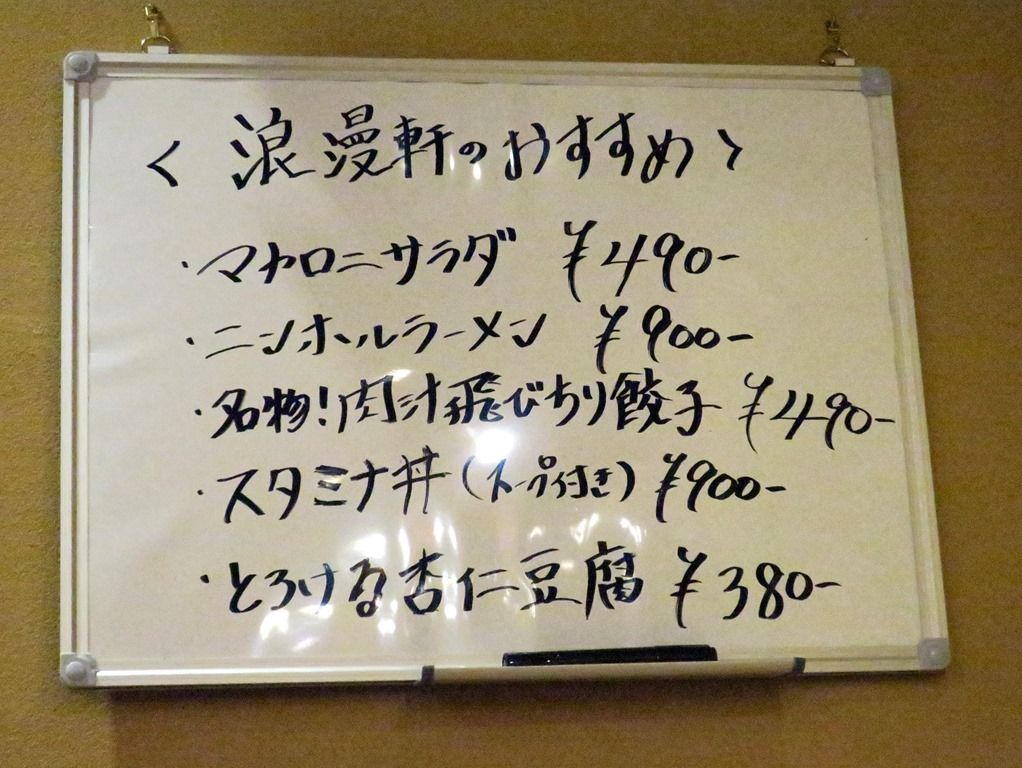 ＜浪漫軒のおすすめ＞
・マカロニサラダ ¥490-
・ニンホルラーメン ¥900-
・名物！肉汁飛びちり餃子 ¥490-
・スタミナ丼（スープ付き）¥900-
・とろける杏仁豆腐 ¥380-